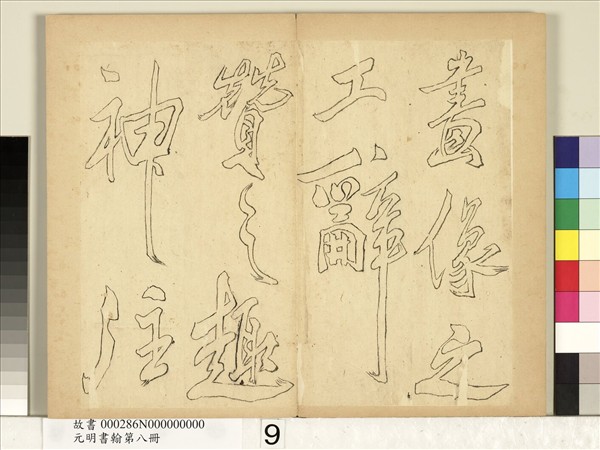 畫像之
工辭
贊之趣
神往
故書 000286N000000000
元明書翰第八冊
9